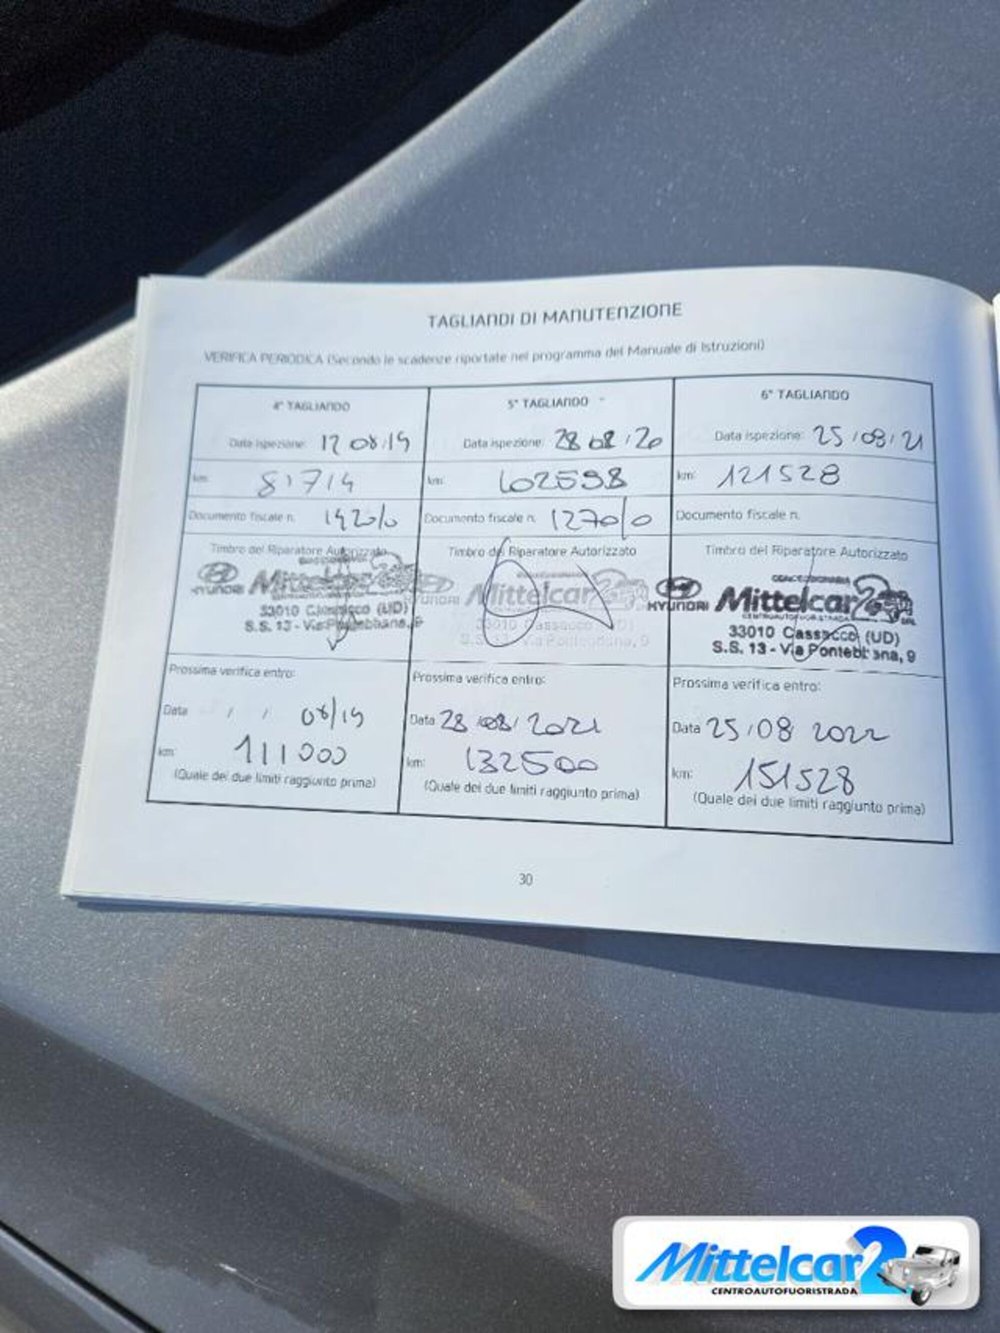 TAGLIANDI DI MANUTENZIONE
VERIFICA PERIODICA (Secondo le scadenze riportate nel programma del Manuale di Istruzioni)
4° TAGLIANDO
Data ispezione: 12 08/19
km: 81714
Documento fiscale n. 1420/0
Timbro del Riparatore Autorizzato
HYUNDAI Mittelcar
33010 Cassacco (UD)
S.S. 13 - Via Pontebbana, 9
Prossima verifica entro:
Data / / 08/19
km: 111000
(Quale dei due limiti raggiunto prima)
5° TAGLIANDO
Data ispezione: 28 08/20
km: 102598
Documento fiscale n. 1270/0
Timbro del Riparatore Autorizzato
HYUNDAI Mittelcar 2
33010 Cassacco (UD)
S.S. 13 - Via Pontebbana, 9
Prossima verifica entro:
Data 28/08/2021
km: 132500
(Quale dei due limiti raggiunto prima)
6° TAGLIANDO
Data ispezione: 25/08/21
km: 121528
Documento fiscale n.
Timbro del Riparatore Autorizzato
CONCESSIONARIA
HYUNDAI Mittelcar 2 SRL
CENTROAUTOFUORISTRADA
33010 Cassacco (UD)
S.S. 13 - Via Pontebbana, 9
Prossima verifica entro:
Data 25/08 2022
km: 151528
(Quale dei due limiti raggiunto prima)
30
Mittelcar 2
CENTROAUTOFUORISTRADA